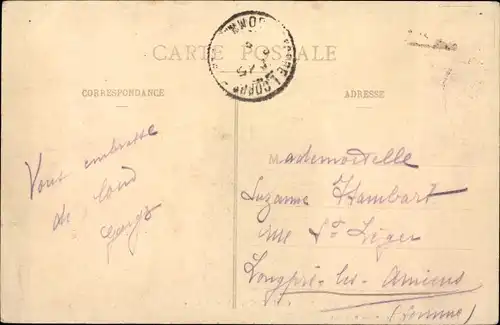 CARTE POSTALE
CORRESPONDANCE
ADRESSE
Vous embrasse
de loin
Mademoiselle
Suzanne Hambart
rue St Léger
Longpré-les-Amiens
(Somme)